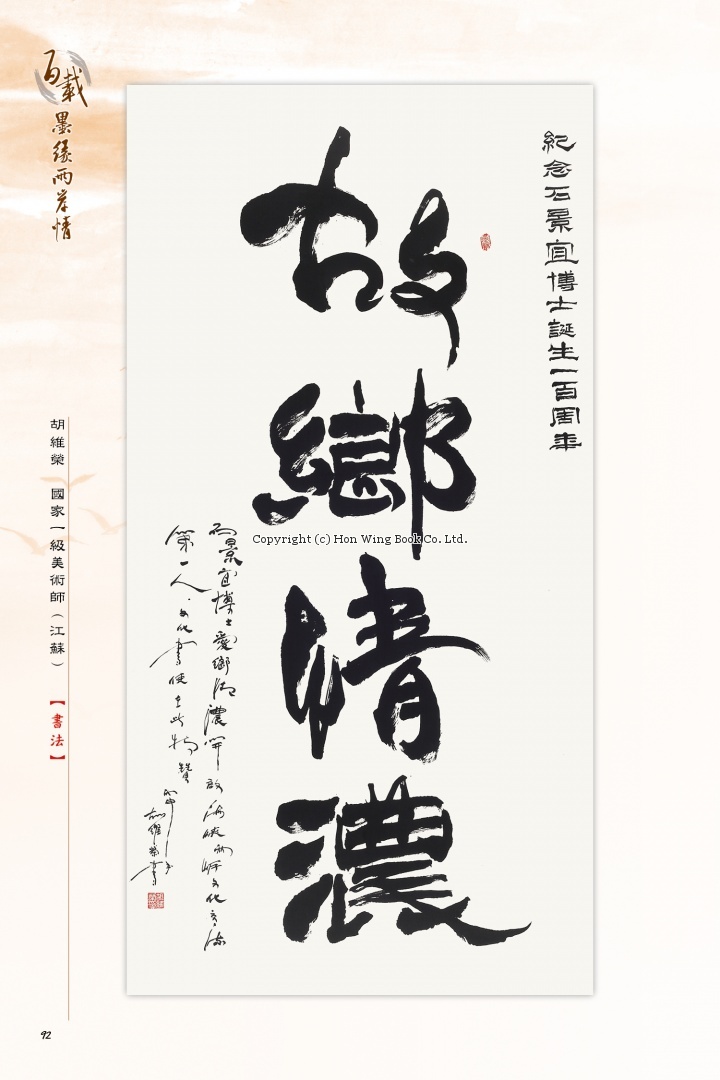 百載
墨緣兩岸情
紀念石景宜博士誕生一百周年
故鄉情濃
石景宜博士愛鄉情濃開啟海峽兩岸文化交流
第一人文化書使者
胡維榮書
胡維榮 國家一級美術師(江蘇)
【書法】
Copyright (c) Hon Wing Book Co. Ltd.
92